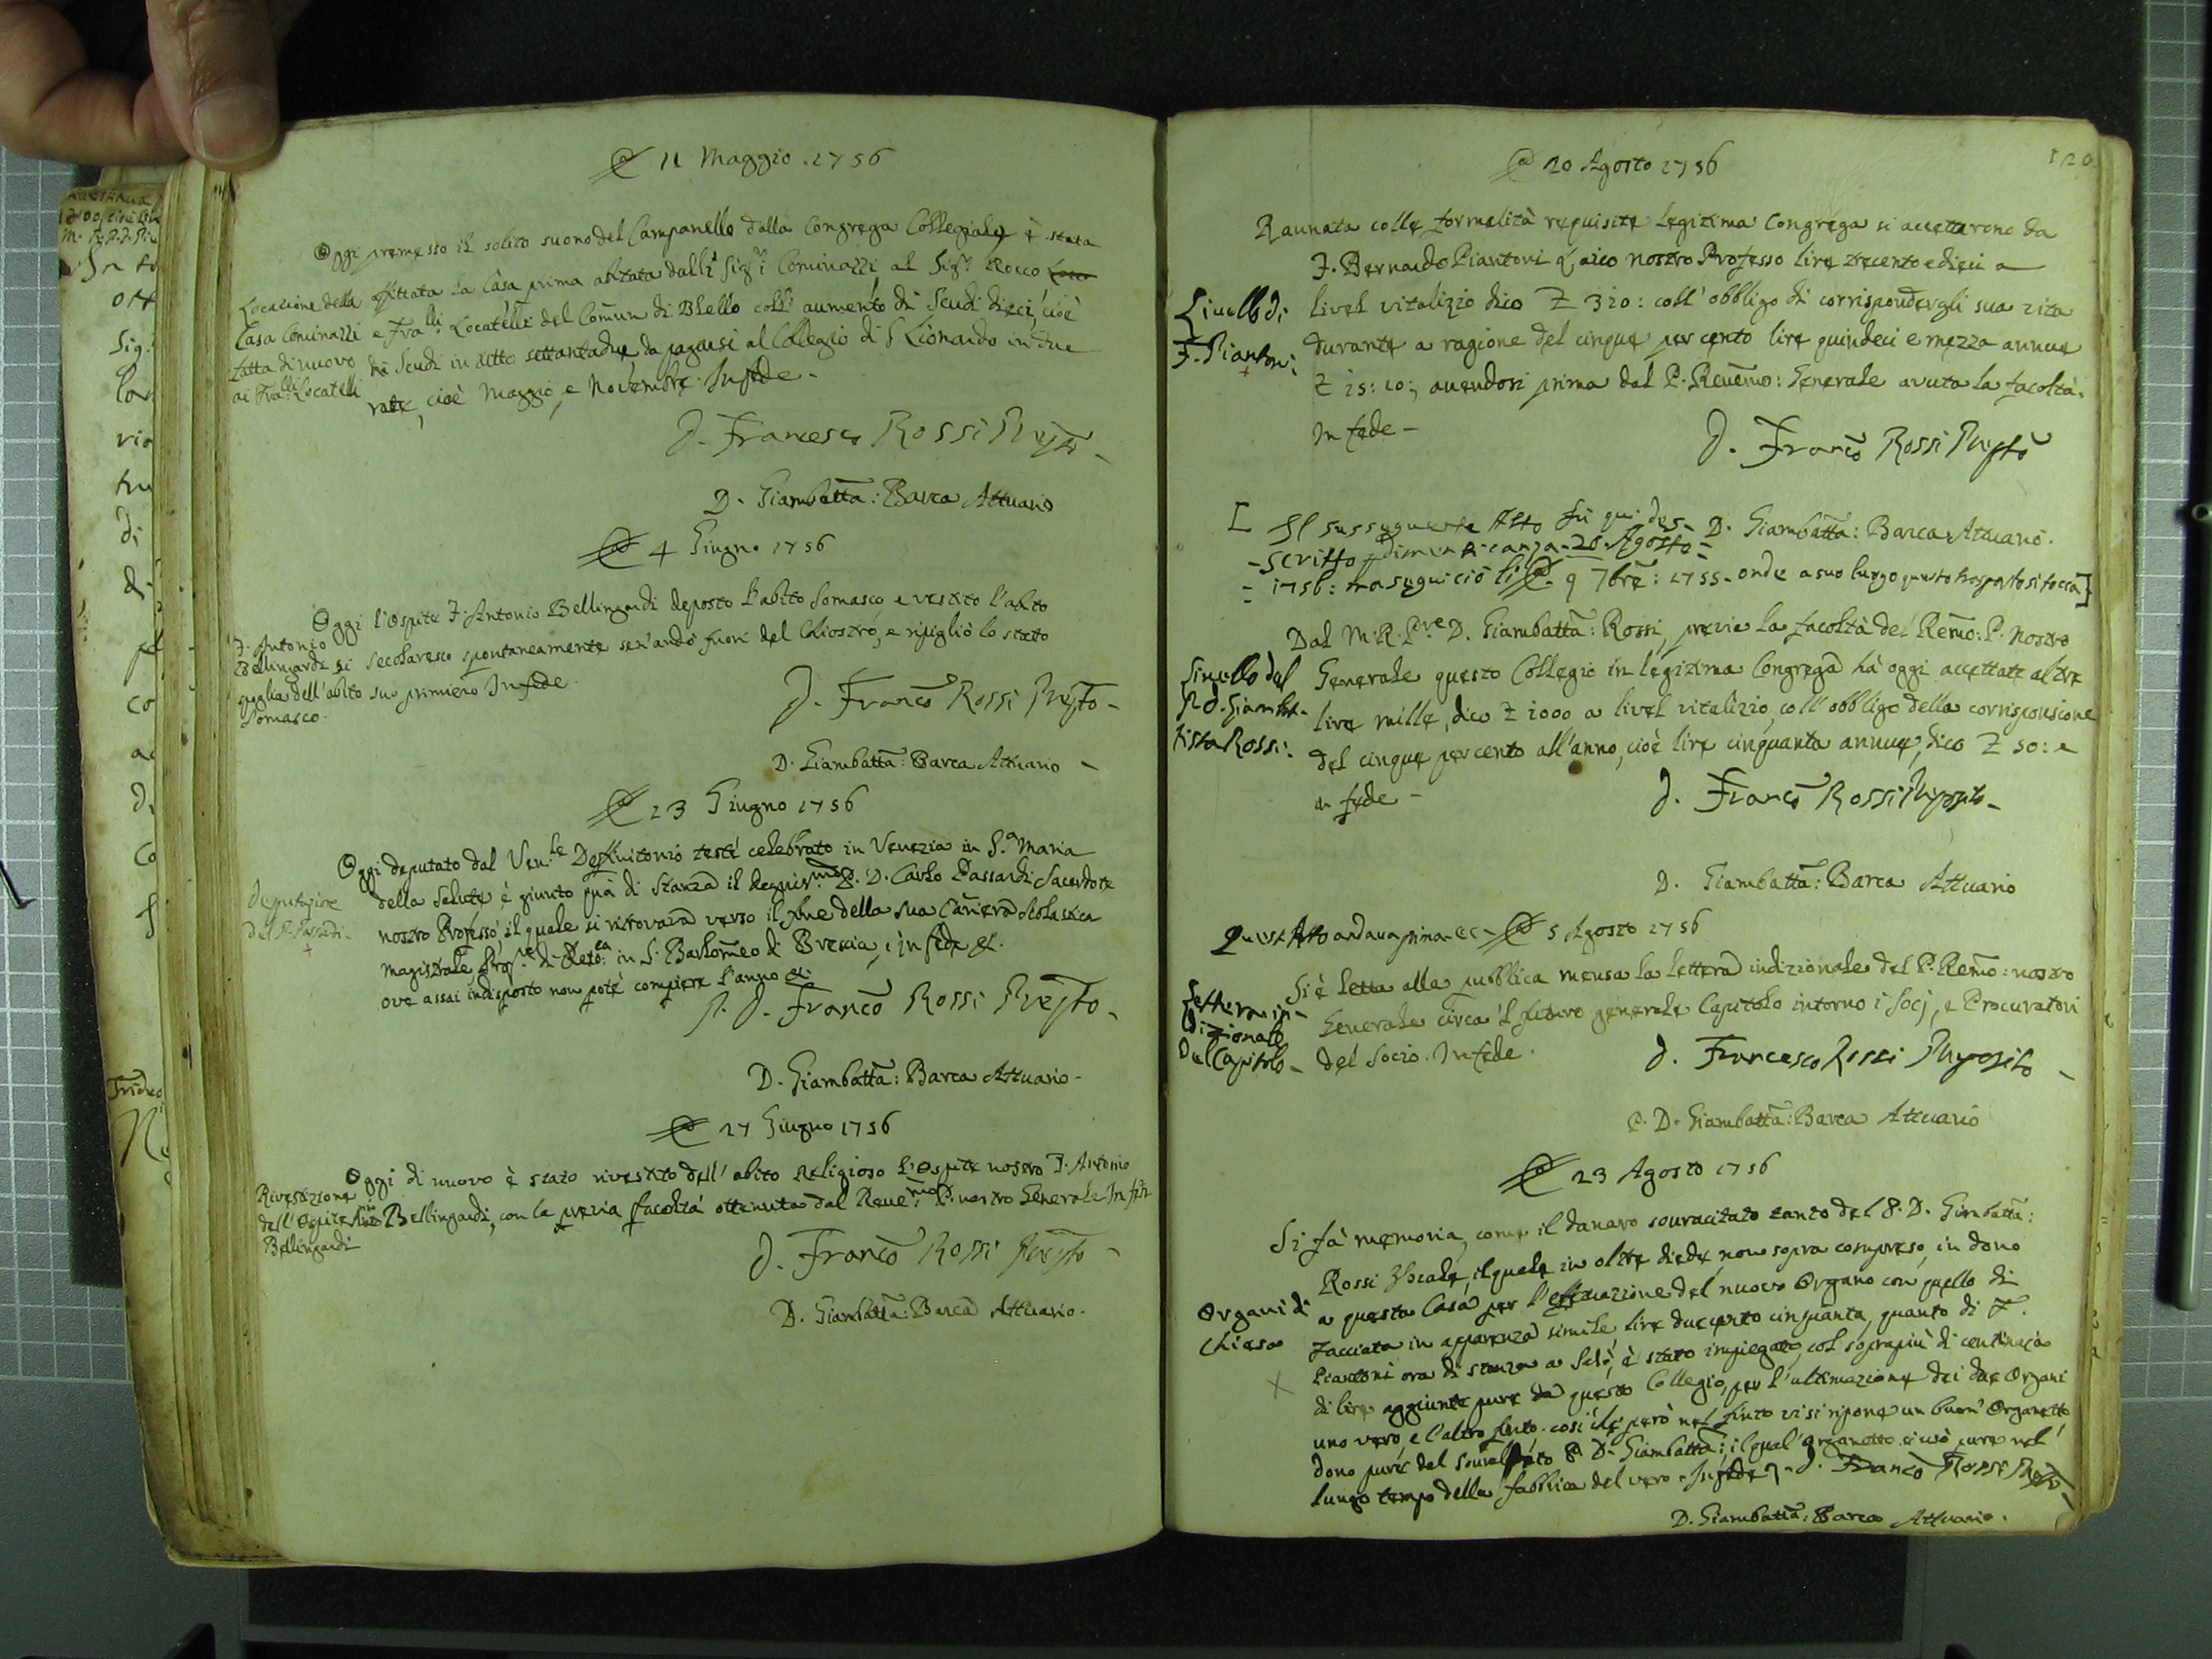 11 Maggio 1756
Oggi premesso il solito suono del Campanello dalla Congrega Collegiale è stata
affittata la Casa prima abitata dalli Sig.ri Cominazzi al Sig.r Rocco
e Fra.lli Locatelli del Comun di Blello coll' aumento di Scudi dieci, cioè
di Scudi in tutto settantadue da pagarsi al Collegio di S Lionardo in due
rate, cioè Maggio, e Novembre. In fede -
Locazione della
Casa Cominazzi
fatta di nuovo
ai Fra.lli Locatelli
D. Francesco Rossi Prep.to -
D. Giambatta: Barca Attuario
4 Giugno 1756
Oggi l'Ospite F. Antonio Bellingardi deposto l'abito Somasco, e vestito l'abito
secolaresco spontaneamente sen'andò fuori del Chiostro, e ripigliò lo stato
suo primiero In fede.
F. Antonio
Bellingardi si
spoglia dell'abito
Somasco.
D. Franco Rossi Prep.to -
D. Giambatta: Barca Attuario -
23 Giugno 1756
Oggi deputato dal Ven.le Definitorio testè celebrato in Venezia in S.a Maria
della Salute è giunto qua di Stanza il P. D. Carlo Passardi Sacerdote
nostro Professo, il quale si ritrovava verso il fine della sua Carriera Scolastica
Magistrale di Reto.ca in S. Bartolomeo di Brescia, in fede &.
ove assai indisposto non potè compiere l'anno &.
Deputazione
del P. Passardi -
D. Franco Rossi Prep.to -
D. Giambatta: Barca Attuario -
27 Giugno 1756
Oggi di nuovo è stato rivestito dell' abito Religioso l'Ospite nostro F. Antonio
Bellingardi, con la previa facoltà ottenuta dal Reve.mo P. nostro Generale In fede
Rivestizione
dell'Ospite
Bellingardi
D. Franco Rossi Prep.to -
D. Giambatta: Barca Attuario -
120
20 Agosto 1756
Raunata colle formalità requisite legitima Congrega si accettarono da
F. Bernardo Piantoni Laico nostro Professo lire trecento e dieci a
livel vitalizio dico Z 310: coll' obbligo di corrispondergli sua vita
durante a ragione del cinque per cento lire quindeci e mezza annue
Z 15: 10; avendosi prima dal P. Revemo: Generale avuta la facoltà.
In fede -
Livello di
F. Piantoni
D. Franco Rossi Prep.to
D. Giambatta: Barca Attuario.
[ Il susseguente Atto fu qui des-
-scritto dimenticanza - 20 - Agosto -
- 1756: ma seguì ciò li 9 7bre: 1755 - onde a suo luogo questo trasporto si tocca]
Dal M. R. P.re D. Giambatta: Rossi, previa la facoltà del Remo: P. nostro
Generale questo Collegio in legitima Congrega hà oggi accettate altre
lire mille, dico Z 1000 a livel vitalizio, coll' obbligo della corrisponsione
del cinque per cento all'anno, cioè lire cinquanta annue, dico Z 50: e
in fede -
Livello del
P. D. Giambat-
tista Rossi:
D. Franco Rossi Preposito -
D. Giambatta: Barca Attuario
Quest Atto andava prima &c - 5 Agosto 1756
Si è letta alla pubblica mensa la lettera indizionale del P. Remo: nostro
Generale circa il futuro generale Capitolo intorno i Socj, e Procuratori
del Socio. In fede.
Lettera in-
dizionale
del Capitolo -
D. Francesco Rossi Preposito -
P. D. Giambatta: Barca Attuario
23 Agosto 1756
Si fà memoria, come il danaro sovracitato tanto del P. D. Giambatta:
Rossi il quale in oltre diede non sopra compreso, in dono
a questa Casa per l'effettuazione del nuovo Organo con quello di
facciata in apparenza simile lire duecento cinquanta, quanto di F.
Piantoni ora di stanza a Salò, è stato impiegato, col soprapiù di centinaja
di lire aggiunte pure da questo Collegio, per l'ultimazione dei due Organi
uno vero, e l'altro finto. così che però nel finto vi si ripone un buon' Organetto
dono pure del P. D. Giambatta: il qual' organetto si usò pure nel
lungo tempo della fabbrica del vero. In fede - D. Franco Rossi Prep.to -
Organi di
Chiesa
D. Giambatta: Barca Attuario.